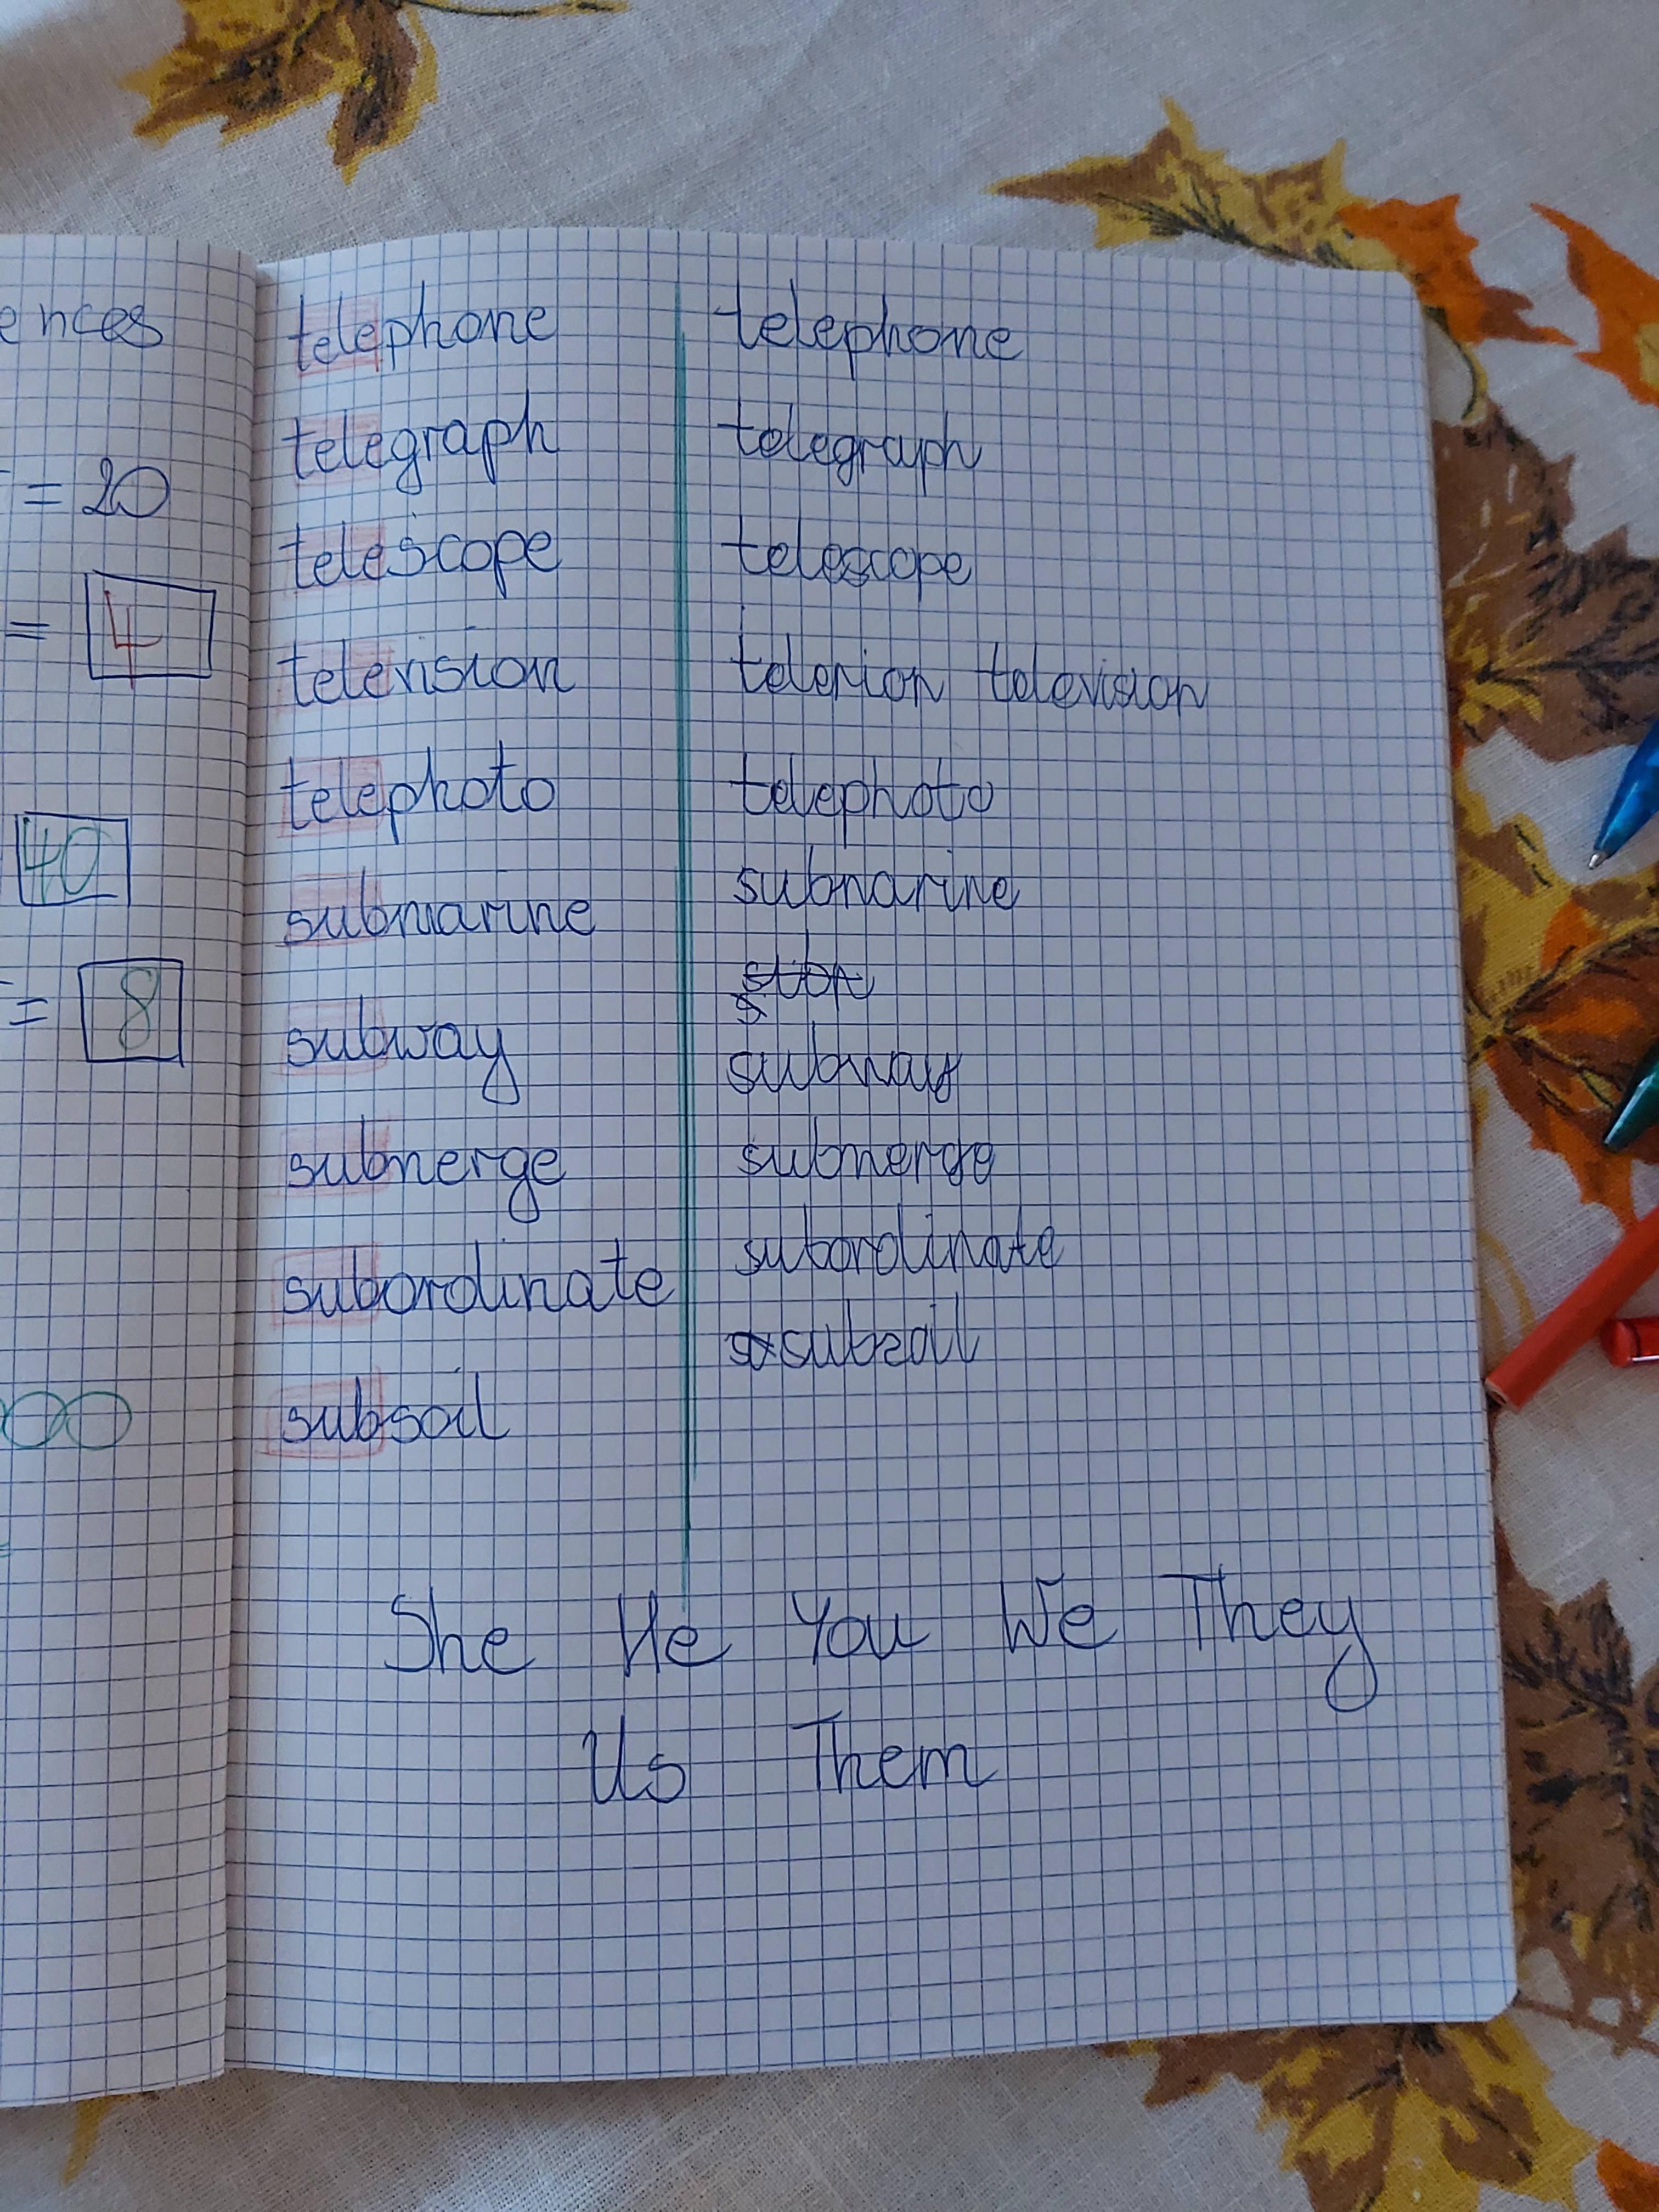 ences
= 20
= 4
40
= 8
telephone telephone
telegraph telegraph
telescope telescope
television telerion television
telephoto telephoto
submarine submarine
subway subway
submerge submerge
subordinate subordinate
subsoil subsoil
She He You We They
Us Them